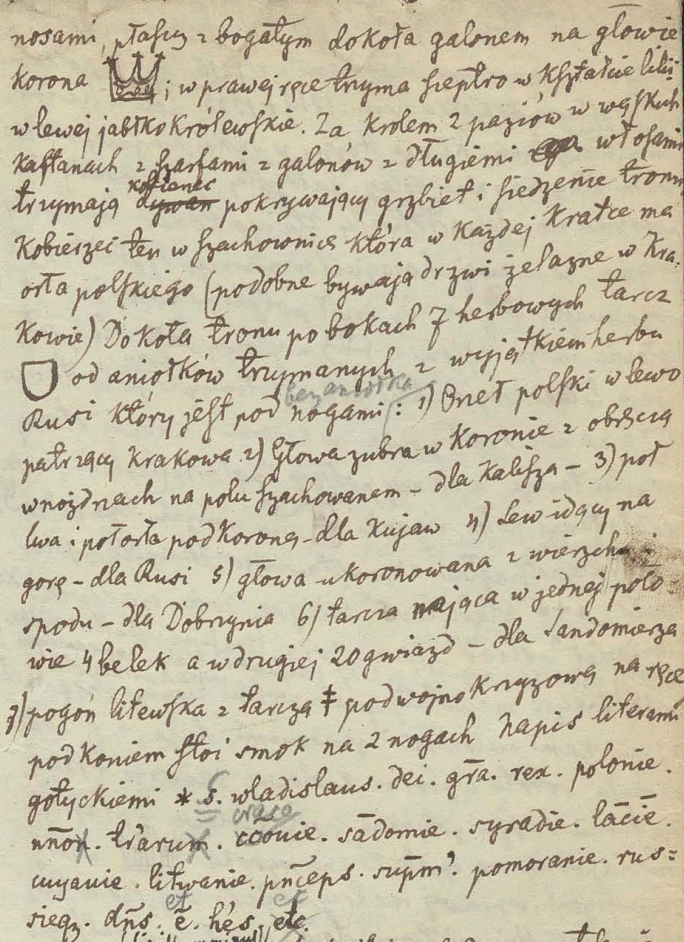 nosami, płaszcz z bogatym dokoła galonem na głowie
korona ; w prawej ręce trzyma sceptro w kształcie lilii
w lewej jabłko królewskie. Za królem 2 paziów w wąskich
kaftanach z szarfami z galonów z długiemi włosami
trzymają kobierzec pokrywający grzbiet i siedzenie tronu
Kobierzec ten w szachownicę która w każdej kratce ma
orła polskiego (podobne bywają drzwi żelazne w Kra-
kowie) Dokoła tronu po bokach 7 herbowych tarcz
od aniołków trzymanych z wyjątkiem herbu
bez aniołka
Rusi który jest pod nogami: 1) Orzeł polski w lewo
patrzący Krakowa 2) Głowa żubra w koronie z obrączą
w nozdrzach na polu szachowanem – dla Kalisza – 3) pół
lwa i pół orła pod koroną – dla Kujaw 4) Lew idący na
górę – dla Rusi 5) głowa ukoronowana z wierzchu i
spodu – dla Dobrzynia 6) tarcza mająca w jednej poło-
wie 4 belek a w drugiej 20 gwiazd – dla Sandomierza
7) pogoń litewska z tarczą ‡ podwójno krzyżową na ręce
pod koniem stoi smok na 2 nogach Napis literami
gotyckiemi * s. wladislaus. dei. gra. rex. polonie.
nnon. trarum. ccouie. sadomie. syradie. lacie.
cuyauie. litwanie. pnceps. supm’. pomoranie. rus=
sieqz. dns. e. hes. etc.